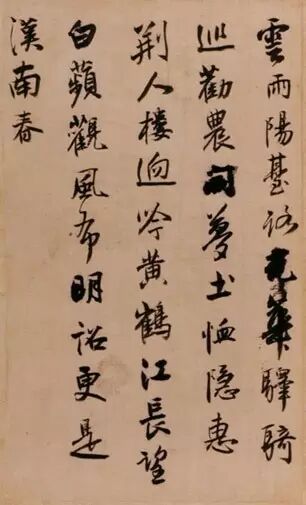 雲雨陽臺路光華驛騎
巡勸農開夢土恤隱惠
荊人樓迥吟黃鶴江長望
白蘋觀風布明詔更是
漢南春